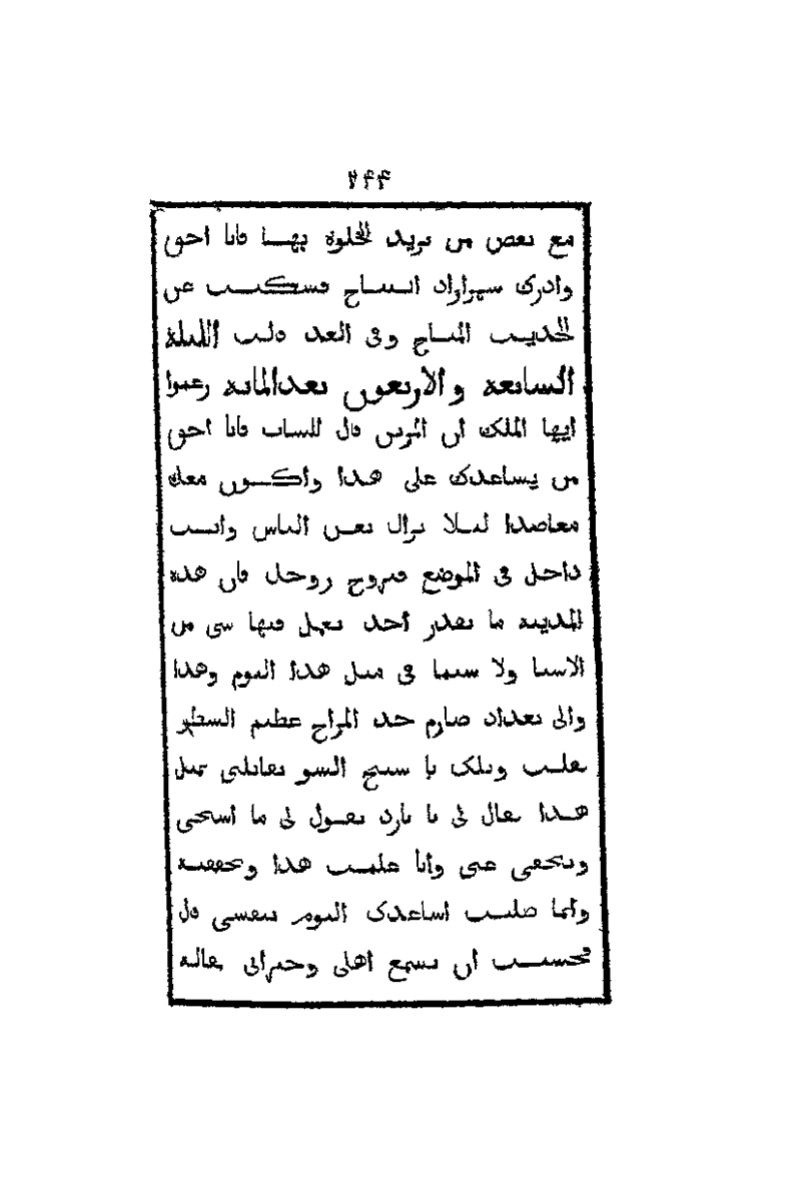 ۲۴۴
مع بعض من تريد الخلوة بها فانا احق
وادرك شهرازاد الصباح فسكتت عن
الحديث المباح وفى الغد قالت الليلة
السابعة والاربعون بعد المائة زعموا
ايها الملك ان المزين قال للشاب فانا احق
من يساعدك على هذا واكون معك
معاضدا ليلا يراك بعض الناس وانت
داخل فى الموضع فتروح روحك فان هذه
المدينة ما يقدر احد يعمل فيها شى من
الاشيا ولا سيما فى مثل هذا اليوم وهذا
والى بغداد صارم حد المزاج عظيم
فقلت ويلك يا شيخ السو تقابلنى بمثل
هذا فقال لى يا بارد تقول لى ما استحى
وتخفى عنى وانا علمت هذا وتحققته
وانما طلبت اساعدك اليوم بنفسى قال
فخشيت ان يسمع اهلى وجيرانى مقالته